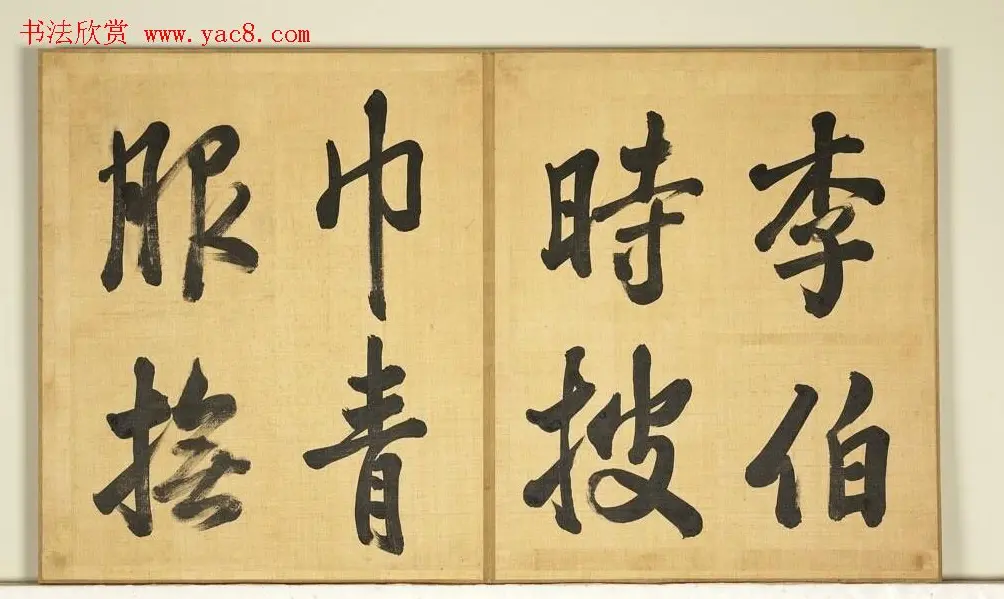 书法欣赏 www.yac8.com
李伯
時披
巾青
服撫